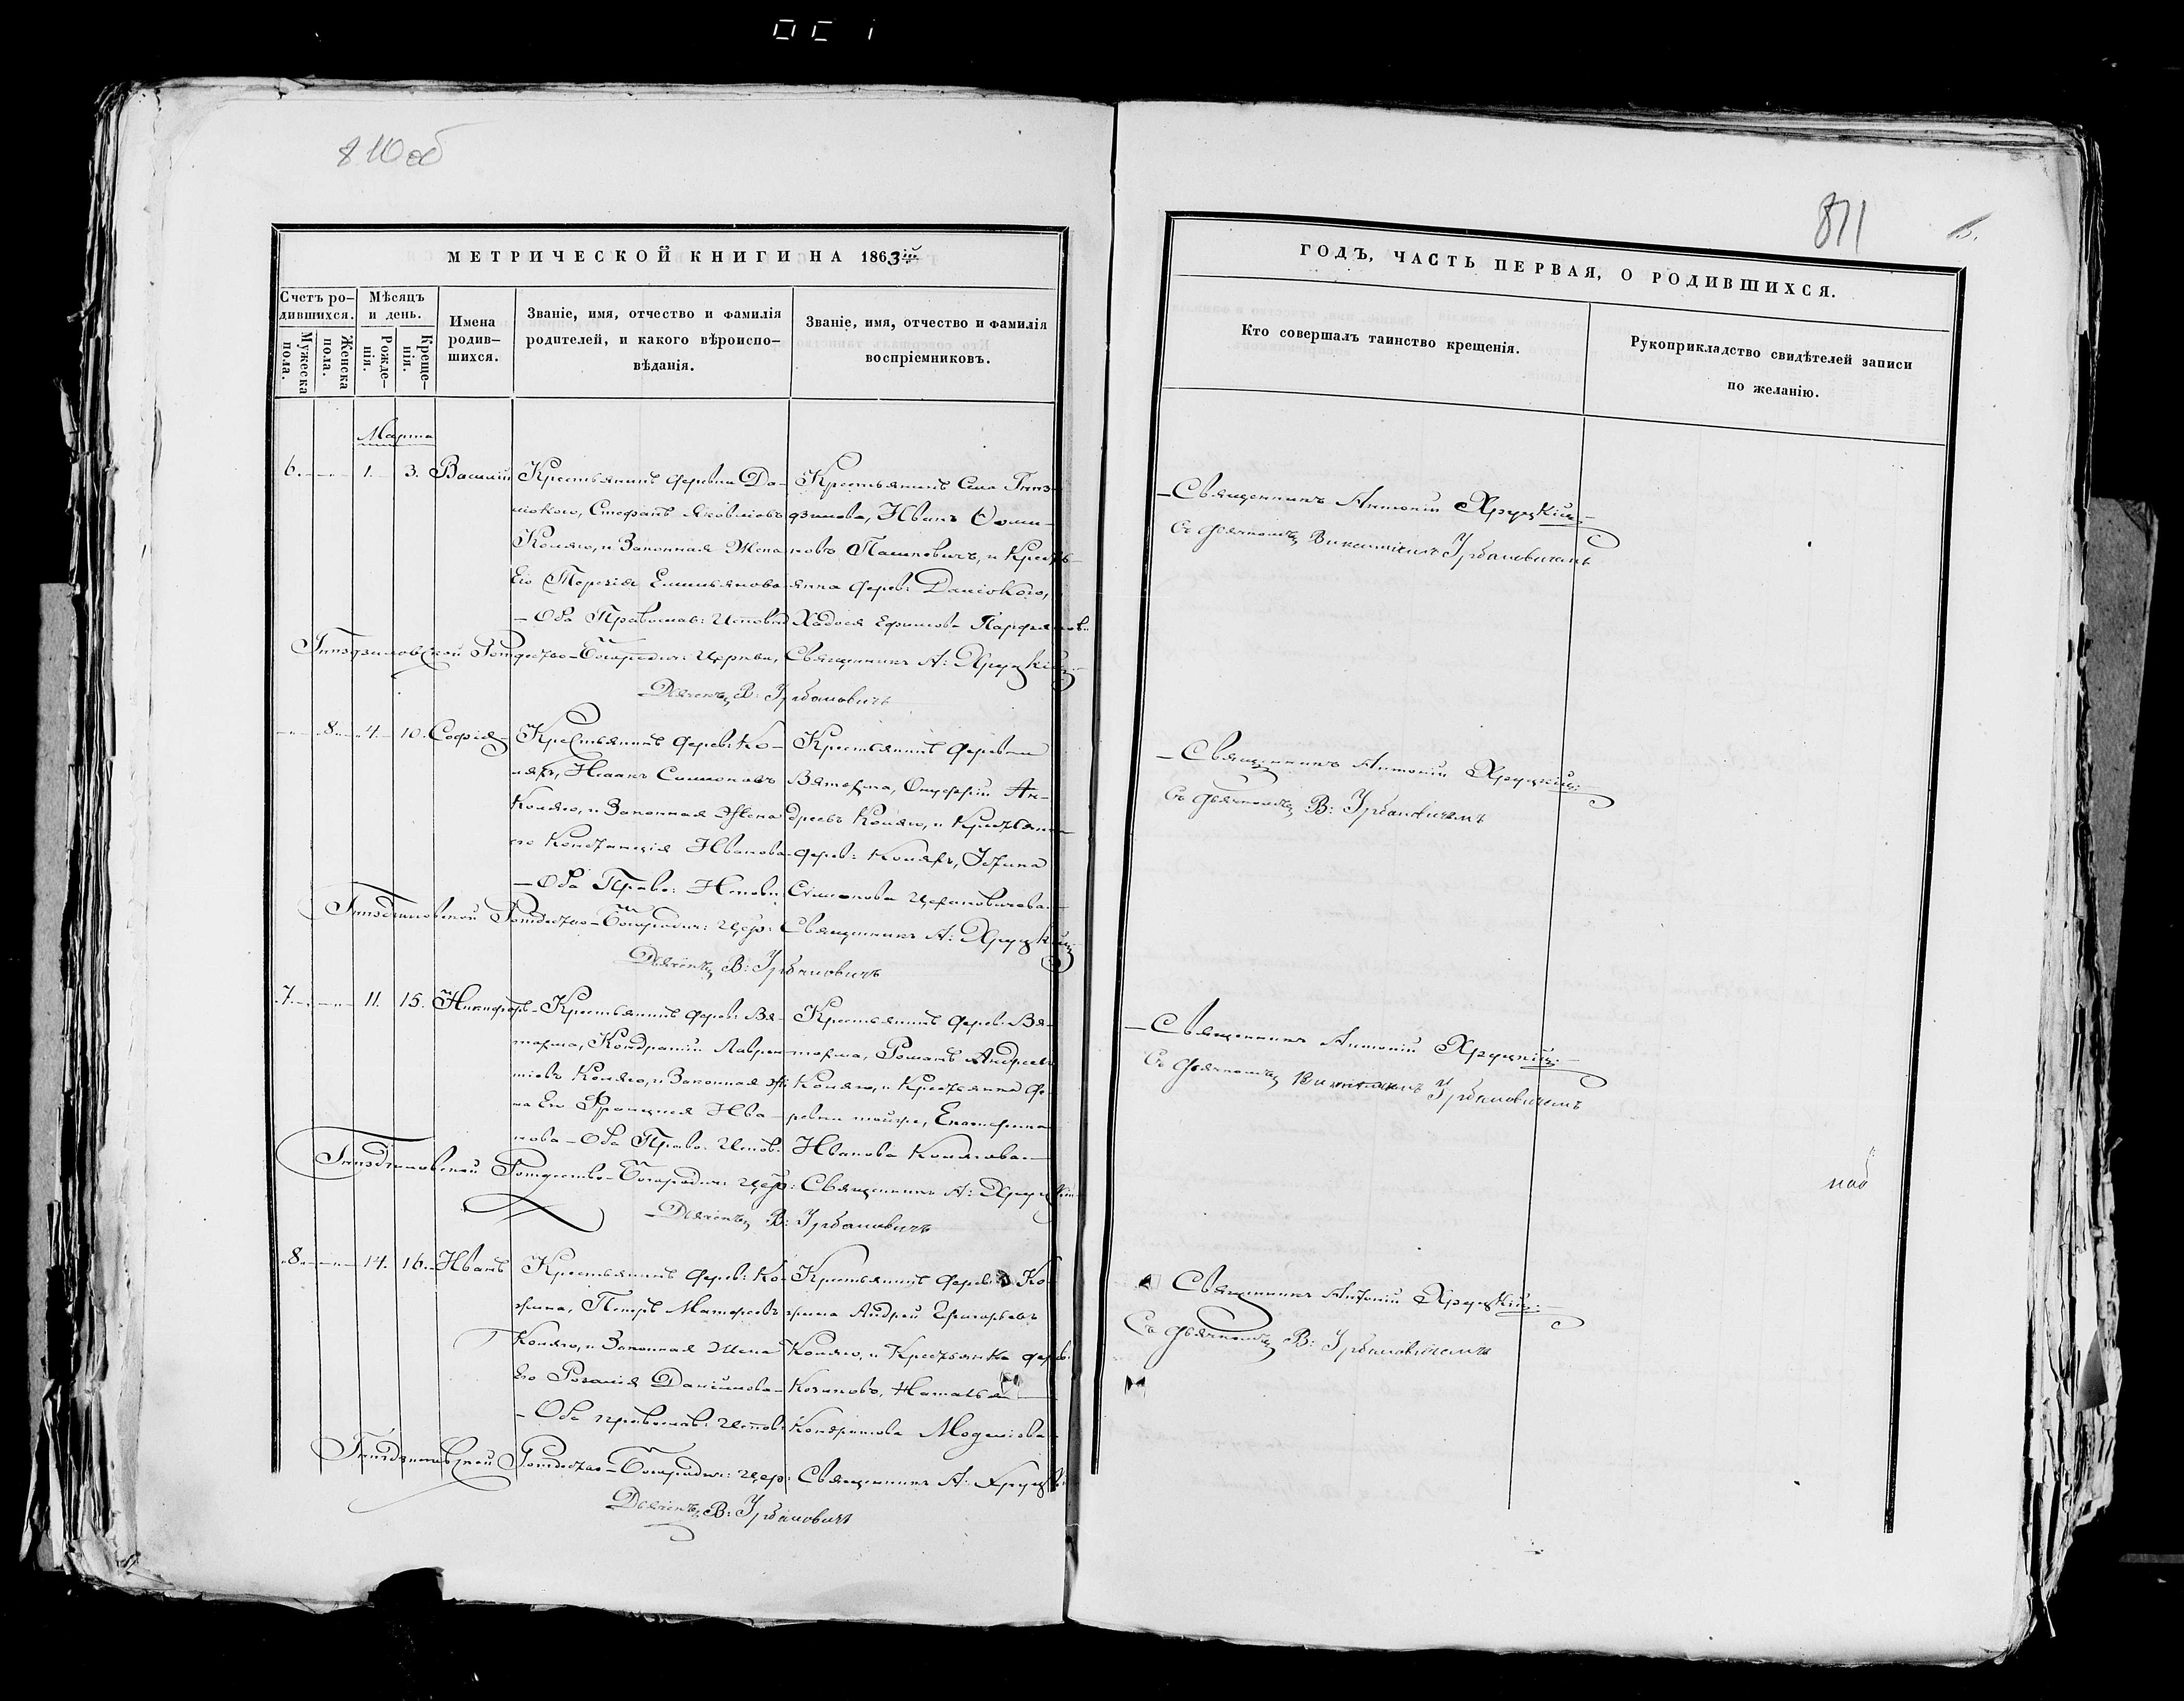 810 об
МЕТРИЧЕСКОЙ КНИГИ НА 1863 ій
Счетъ ро-
дившихся.
Мѣсяцъ
и день.
Мужеска
пола.
Женска
пола.
Рожде-
нія.
Креще-
нія.
Имена
родив-
шихся.
Званіе, имя, отчество и фамилія
родителей, и какого вѣроиспо-
вѣданія.
Званіе, имя, отчество и фамилія
воспріемниковъ.
Марта
6. 1. 3. Василій
Крестьянинъ деревни Да-
Стефанъ Яковлевъ
Коляго, и Законная Жена
Его Терезія Емильянова
– Оба Православ: Исповѣд
Крестьянинъ Села Гнѣз-
дилова, Иванъ Ѳоми-
новъ Пашковичъ, и Кресть-
янка дерев:
Ходося Ефимова
Гнѣздиловской Рождество-Богородич: Церкви, Священникъ А: Хруцкій
Дьячекъ В: Урбановичъ
8. 4. 10. Софія
Крестьянинъ дерев: Ко-
ляги, Исаакъ Симоновъ
Коляго, и Законная Жена
его Констанція Иванова
– Оба Правос: Исповѣ:
Крестьянинъ деревни
Вятерма, Онуфрій Ан-
дреевъ Коляго, и Крестьянка
дерев: Коляги, Іустина
Симонова
Гнѣздиловской Рождество-Богородич: Цер: Священникъ А: Хруцкій
Дьячекъ В: Урбановичъ
7. 11. 15. Никифоръ
Крестьянинъ дерев: Вя-
терма, Кондратій Лаврен-
тіевъ Коляго, и Законная Же
на Его Францишка Ива-
нова – Оба Правос: Испов:
Крестьянинъ дерев: Вя-
терма, Романъ Андреевъ
Коляго, и Крестьянка де-
ревни той же, Екатерина
Иванова Колягова
Гнѣздиловской Рождество-Богородич: Цер: Священникъ А: Хруцкій
Дьячекъ В: Урбановичъ
8. 14. 16. Иванъ
Крестьянинъ дерев: Ко-
зина, Петръ Матѳеевъ
Коляго, и Законная Жена
Его Розалія Даніилова
– Оба православ: Испов:
Крестьянинъ дерев: Ко-
зина Андрей Григорьевъ
Коляго, и Крестьянка дерев:
Наталья
Кондратова
Гнѣздиловской Рождество-Богородич: Цер: Священникъ А: Хруцкій
Дьячекъ В: Урбановичъ
811
ГОДЪ, ЧАСТЬ ПЕРВАЯ, О РОДИВШИХСЯ.
Кто совершалъ таинство крещенія.
Рукоприкладство свидѣтелей записи
по желанію.
– Священникъ Антоній Хруцкій
Съ дьячкомъ Викентіемъ Урбановичемъ
– Священникъ Антоній Хруцкій
Съ дьячкомъ В: Урбановичемъ
– Священникъ Антоній Хруцкій
Съ дьячкомъ Викентіемъ Урбановичемъ
Священникъ Антоній Хруцкій
Съ дьячкомъ В: Урбановичемъ